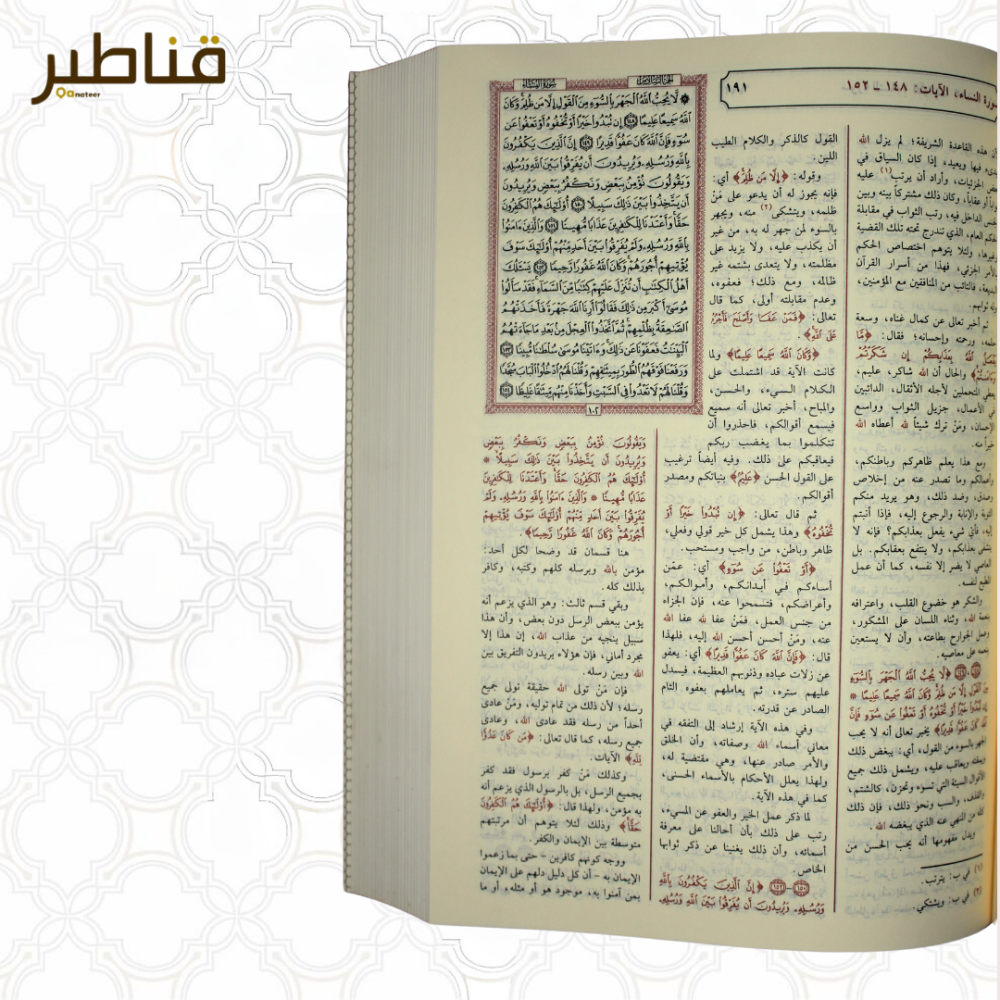 قناطير
Qanateer
سورة النساء، الآيات: ١٤٨ - ١٥٢
١٩١
هذه القاعدة الشريفة؛ لم يزل الله
فيها ويعيد، إذا كان السياق في
بعض الجزئيات، وأراد أن يرتب(١) عليه
أو عقاباً، وكان ذلك مشتركاً بينه وبين
الداخل فيه، رتب الثواب في مقابلة
العام، الذي تندرج تحته تلك القضية
وغيرها، ولئلا يتوهم اختصاص الحكم
بالأمر الجزئي، فهذا من أسرار القرآن
البديعة، فالتائب من المنافقين مع المؤمنين،
وله ثوابهم.
ثم أخبر تعالى عن كمال غناه، وسعة
حلمه، ورحمته وإحسانه؛ فقال: ﴿مَّا
يَفْعَلُ اللَّهُ بِعَذَابِكُمْ إِن شَكَرْتُمْ
وَءَامَنتُمْ﴾ والحال أن الله شاكر، عليم،
يعطي المتحملين لأجله الأثقال، الدائبين
في الأعمال، جزيل الثواب وواسع
الإحسان، ومَنْ ترك شيئاً لله أعطاه الله
خيراً منه.
ومع هذا يعلم ظاهركم وباطنكم،
وأعمالكم وما تصدر عنه من إخلاص
وصدق، وضد ذلك، وهو يريد منكم
التوبة والإنابة والرجوع إليه، فإذا أنبتم
إليه، فأي شيء يفعل بعذابكم؟ فإنه لا
يتشفى بعذابكم، ولا ينتفع بعقابكم. بل
العاصي لا يضر إلا نفسه، كما أن عمل
المطيع لنفسه.
والشكر هو خضوع القلب، واعترافه
بنعمة الله، وثناء اللسان على المشكور،
وعمل الجوارح بطاعته، وأن لا يستعين
بنعمه على معاصيه.
﴿١٤٨ - ١٤٩﴾ ﴿لَا يُحِبُّ اللَّهُ الْجَهْرَ بِالسُّوءِ
مِنَ الْقَوْلِ إِلَّا مَن ظُلِمَ وَكَانَ اللَّهُ سَمِيعًا عَلِيمًا *
إِن تُبْدُوا خَيْرًا أَوْ تُخْفُوهُ أَوْ تَعْفُوا عَن سُوءٍ فَإِنَّ
اللَّهَ كَانَ عَفُوًّا قَدِيرًا﴾ يخبر تعالى أنه لا يحب
الجهر بالسوء من القول، أي: يبغض ذلك
ويمقته ويعاقب عليه، ويشمل ذلك جميع
الأقوال السيئة التي تسوء وتحزن، كالشتم،
والقذف، والسب ونحو ذلك، فإن ذلك
كله من المنهي عنه الذي يبغضه الله.
ويدل مفهومها أنه يحب الحسن من
(١) في ب: يترتب.
(٢) في ب: ويشتكي.
القول كالذكر والكلام الطيب
اللين.
وقوله: ﴿إِلَّا مَن ظُلِمَ﴾ أي:
فإنه يجوز له أن يدعو على مَنْ
ظلمه، ويتشكى(٢) منه، ويجهر
بالسوء لمن جهر له به، من غير
أن يكذب عليه، ولا يزيد على
مظلمته، ولا يتعدى بشتمه غير
ظالمه، ومع ذلك؛ فعفوه،
وعدم مقابلته أولى، كما قال
تعالى: ﴿فَمَنْ عَفَا وَأَصْلَحَ فَأَجْرُهُ
عَلَى اللَّهِ﴾.
﴿وَكَانَ اللَّهُ سَمِيعًا عَلِيمًا﴾ ولما
كانت الآية قد اشتملت على
الكلام السيىء، والحسن،
والمباح، أخبر تعالى أنه سميع
فيسمع أقوالكم، فاحذروا أن
تتكلموا بما يغضب ربكم
فيعاقبكم على ذلك. وفيه أيضاً ترغيب
على القول الحسن ﴿عَلِيمًا﴾ بنياتكم ومصدر
أقوالكم.
ثم قال تعالى: ﴿إِن تُبْدُوا خَيْرًا أَوْ
تُخْفُوهُ﴾ وهذا يشمل كل خير قولي وفعلي،
ظاهر وباطن، من واجب ومستحب.
﴿أَوْ تَعْفُوا عَن سُوءٍ﴾ أي: عمّن
أساءكم في أبدانكم، وأموالكم،
وأعراضكم، فتسمحوا عنه، فإن الجزاء
من جنس العمل، فمَنْ عفا لله عفا الله
عنه، ومَنْ أحسن أحسن الله إليه، فلهذا
قال: ﴿فَإِنَّ اللَّهَ كَانَ عَفُوًّا قَدِيرًا﴾ أي: يعفو
عن زلات عباده وذنوبهم العظيمة، فيسدل
عليهم ستره، ثم يعاملهم بعفوه التام
الصادر عن قدرته.
وفي هذه الآية إرشاد إلى التفقه في
معاني أسماء الله وصفاته، وأن الخلق
والأمر صادر عنها، وهي مقتضية له،
ولهذا يعلل الأحكام بالأسماء الحسنى،
كما في هذه الآية.
لما ذكر عمل الخير والعفو عن المسيء،
رتب على ذلك بأن أحالنا على معرفة
أسمائه، وأن ذلك يغنينا عن ذكر ثوابها
الخاص.
﴿١٥٠ - ١٥٢﴾ ﴿إِنَّ الَّذِينَ يَكْفُرُونَ بِاللَّهِ
وَرُسُلِهِ وَيُرِيدُونَ أَن يُفَرِّقُوا بَيْنَ اللَّهِ وَرُسُلِهِ
سورة النساء
لَّا يُحِبُّ اللَّهُ الْجَهْرَ بِالسُّوءِ مِنَ الْقَوْلِ إِلَّا مَن ظُلِمَ وَكَانَ
اللَّهُ سَمِيعًا عَلِيمًا ١٤٨ إِن تُبْدُوا خَيْرًا أَوْ تُخْفُوهُ أَوْ تَعْفُوا عَن
سُوءٍ فَإِنَّ اللَّهَ كَانَ عَفُوًّا قَدِيرًا ١٤٩ إِنَّ الَّذِينَ يَكْفُرُونَ
بِاللَّهِ وَرُسُلِهِ وَيُرِيدُونَ أَن يُفَرِّقُوا بَيْنَ اللَّهِ وَرُسُلِهِ
وَيَقُولُونَ نُؤْمِنُ بِبَعْضٍ وَنَكْفُرُ بِبَعْضٍ وَيُرِيدُونَ
أَن يَتَّخِذُوا بَيْنَ ذَلِكَ سَبِيلًا ١٥٠ أُولَئِكَ هُمُ الْكَافِرُونَ
حَقًّا وَأَعْتَدْنَا لِلْكَافِرِينَ عَذَابًا مُّهِينًا ١٥١ وَالَّذِينَ ءَامَنُوا
بِاللَّهِ وَرُسُلِهِ وَلَمْ يُفَرِّقُوا بَيْنَ أَحَدٍ مِّنْهُمْ أُولَئِكَ سَوْفَ
يُؤْتِيهِمْ أُجُورَهُمْ وَكَانَ اللَّهُ غَفُورًا رَّحِيمًا ١٥٢ يَسْأَلُكَ
أَهْلُ الْكِتَابِ أَن تُنَزِّلَ عَلَيْهِمْ كِتَابًا مِّنَ السَّمَاءِ فَقَدْ سَأَلُوا
مُوسَى أَكْبَرَ مِن ذَلِكَ فَقَالُوا أَرِنَا اللَّهَ جَهْرَةً فَأَخَذَتْهُمُ
الصَّاعِقَةُ بِظُلْمِهِمْ ثُمَّ اتَّخَذُوا الْعِجْلَ مِنْ بَعْدِ مَا جَاءَتْهُمُ
الْبَيِّنَاتُ فَعَفَوْنَا عَن ذَلِكَ وَءَاتَيْنَا مُوسَى سُلْطَانًا مُّبِينًا ١٥٣
وَرَفَعْنَا فَوْقَهُمُ الطُّورَ بِمِيثَاقِهِمْ وَقُلْنَا لَهُمُ ادْخُلُوا الْبَابَ سُجَّدًا
وَقُلْنَا لَهُمْ لَا تَعْدُوا فِي السَّبْتِ وَأَخَذْنَا مِنْهُم مِّيثَاقًا غَلِيظًا ١٥٤
١٠٢
وَيَقُولُونَ نُؤْمِنُ بِبَعْضٍ وَنَكْفُرُ بِبَعْضٍ
وَيُرِيدُونَ أَن يَتَّخِذُوا بَيْنَ ذَلِكَ سَبِيلًا *
أُولَئِكَ هُمُ الْكَافِرُونَ حَقًّا وَأَعْتَدْنَا لِلْكَافِرِينَ
عَذَابًا مُّهِينًا * وَالَّذِينَ ءَامَنُوا بِاللَّهِ وَرُسُلِهِ وَلَمْ
يُفَرِّقُوا بَيْنَ أَحَدٍ مِّنْهُمْ أُولَئِكَ سَوْفَ يُؤْتِيهِمْ
أُجُورَهُمْ وَكَانَ اللَّهُ غَفُورًا رَّحِيمًا﴾.
هنا قسمان قد وضحا لكل أحد:
مؤمن بالله وبرسله كلهم وكتبه، وكافر
بذلك كله.
وبقي قسم ثالث: وهو الذي يزعم أنه
يؤمن ببعض الرسل دون بعض، وأن هذا
سبيل ينجيه من عذاب الله، إن هذا إلا
مجرد أماني، فإن هؤلاء يريدون التفريق بين
الله وبين رسله.
فإن مَنْ تولى الله حقيقة تولى جميع
رسله؛ لأن ذلك من تمام توليه، ومَنْ عادى
أحداً من رسله فقد عادى الله، وعادى
جميع رسله، كما قال تعالى: ﴿مَن كَانَ عَدُوًّا
لِّلَّهِ﴾ الآيات.
وكذلك مَنْ كفر برسول فقد كفر
بجميع الرسل، بل بالرسول الذي يزعم أنه
به مؤمن، ولهذا قال: ﴿أُولَئِكَ هُمُ الْكَافِرُونَ
حَقًّا﴾ وذلك لئلا يتوهم أن مرتبتهم
متوسطة بين الإيمان والكفر.
ووجه كونهم كافرين - حتى بما زعموا
الإيمان به - أن كل دليل دلهم على الإيمان
بمن آمنوا به، موجود هو أو مثله، أو ما